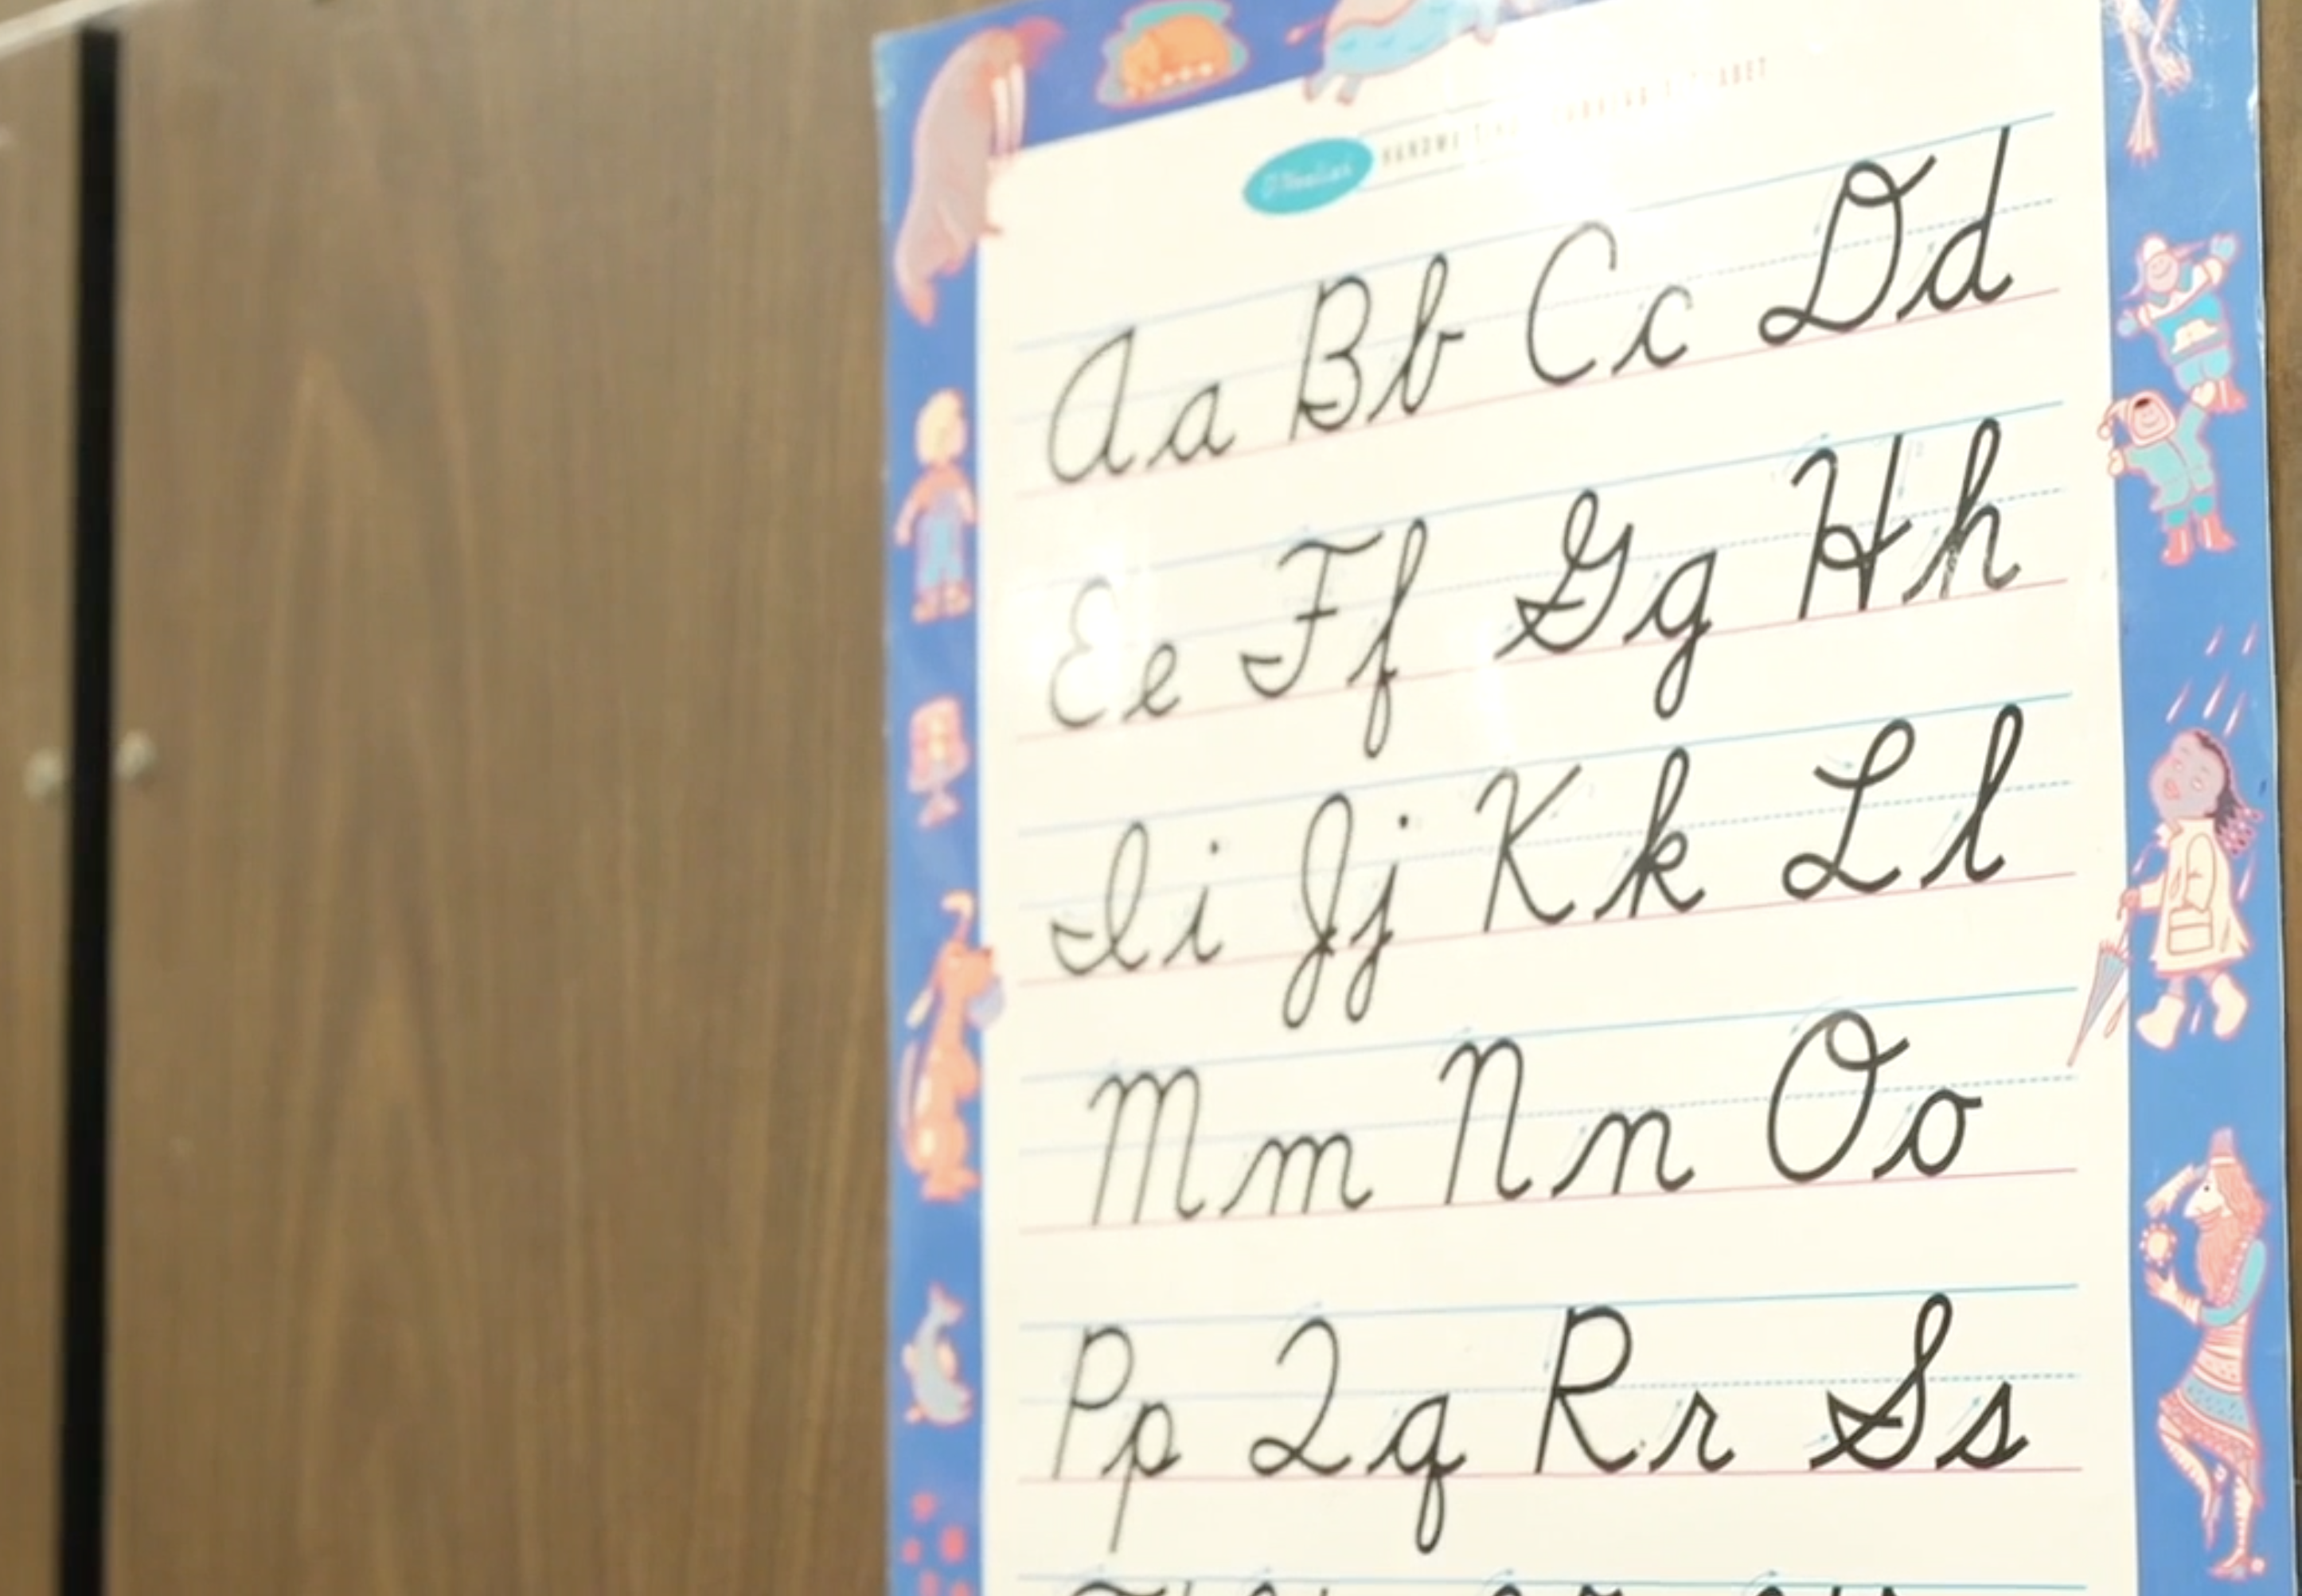 Aa Bb Cc Dd
Ee Ff Gg Hh
Ii Jj Kk Ll
Mm Nn Oo
Pp Qq Rr Ss